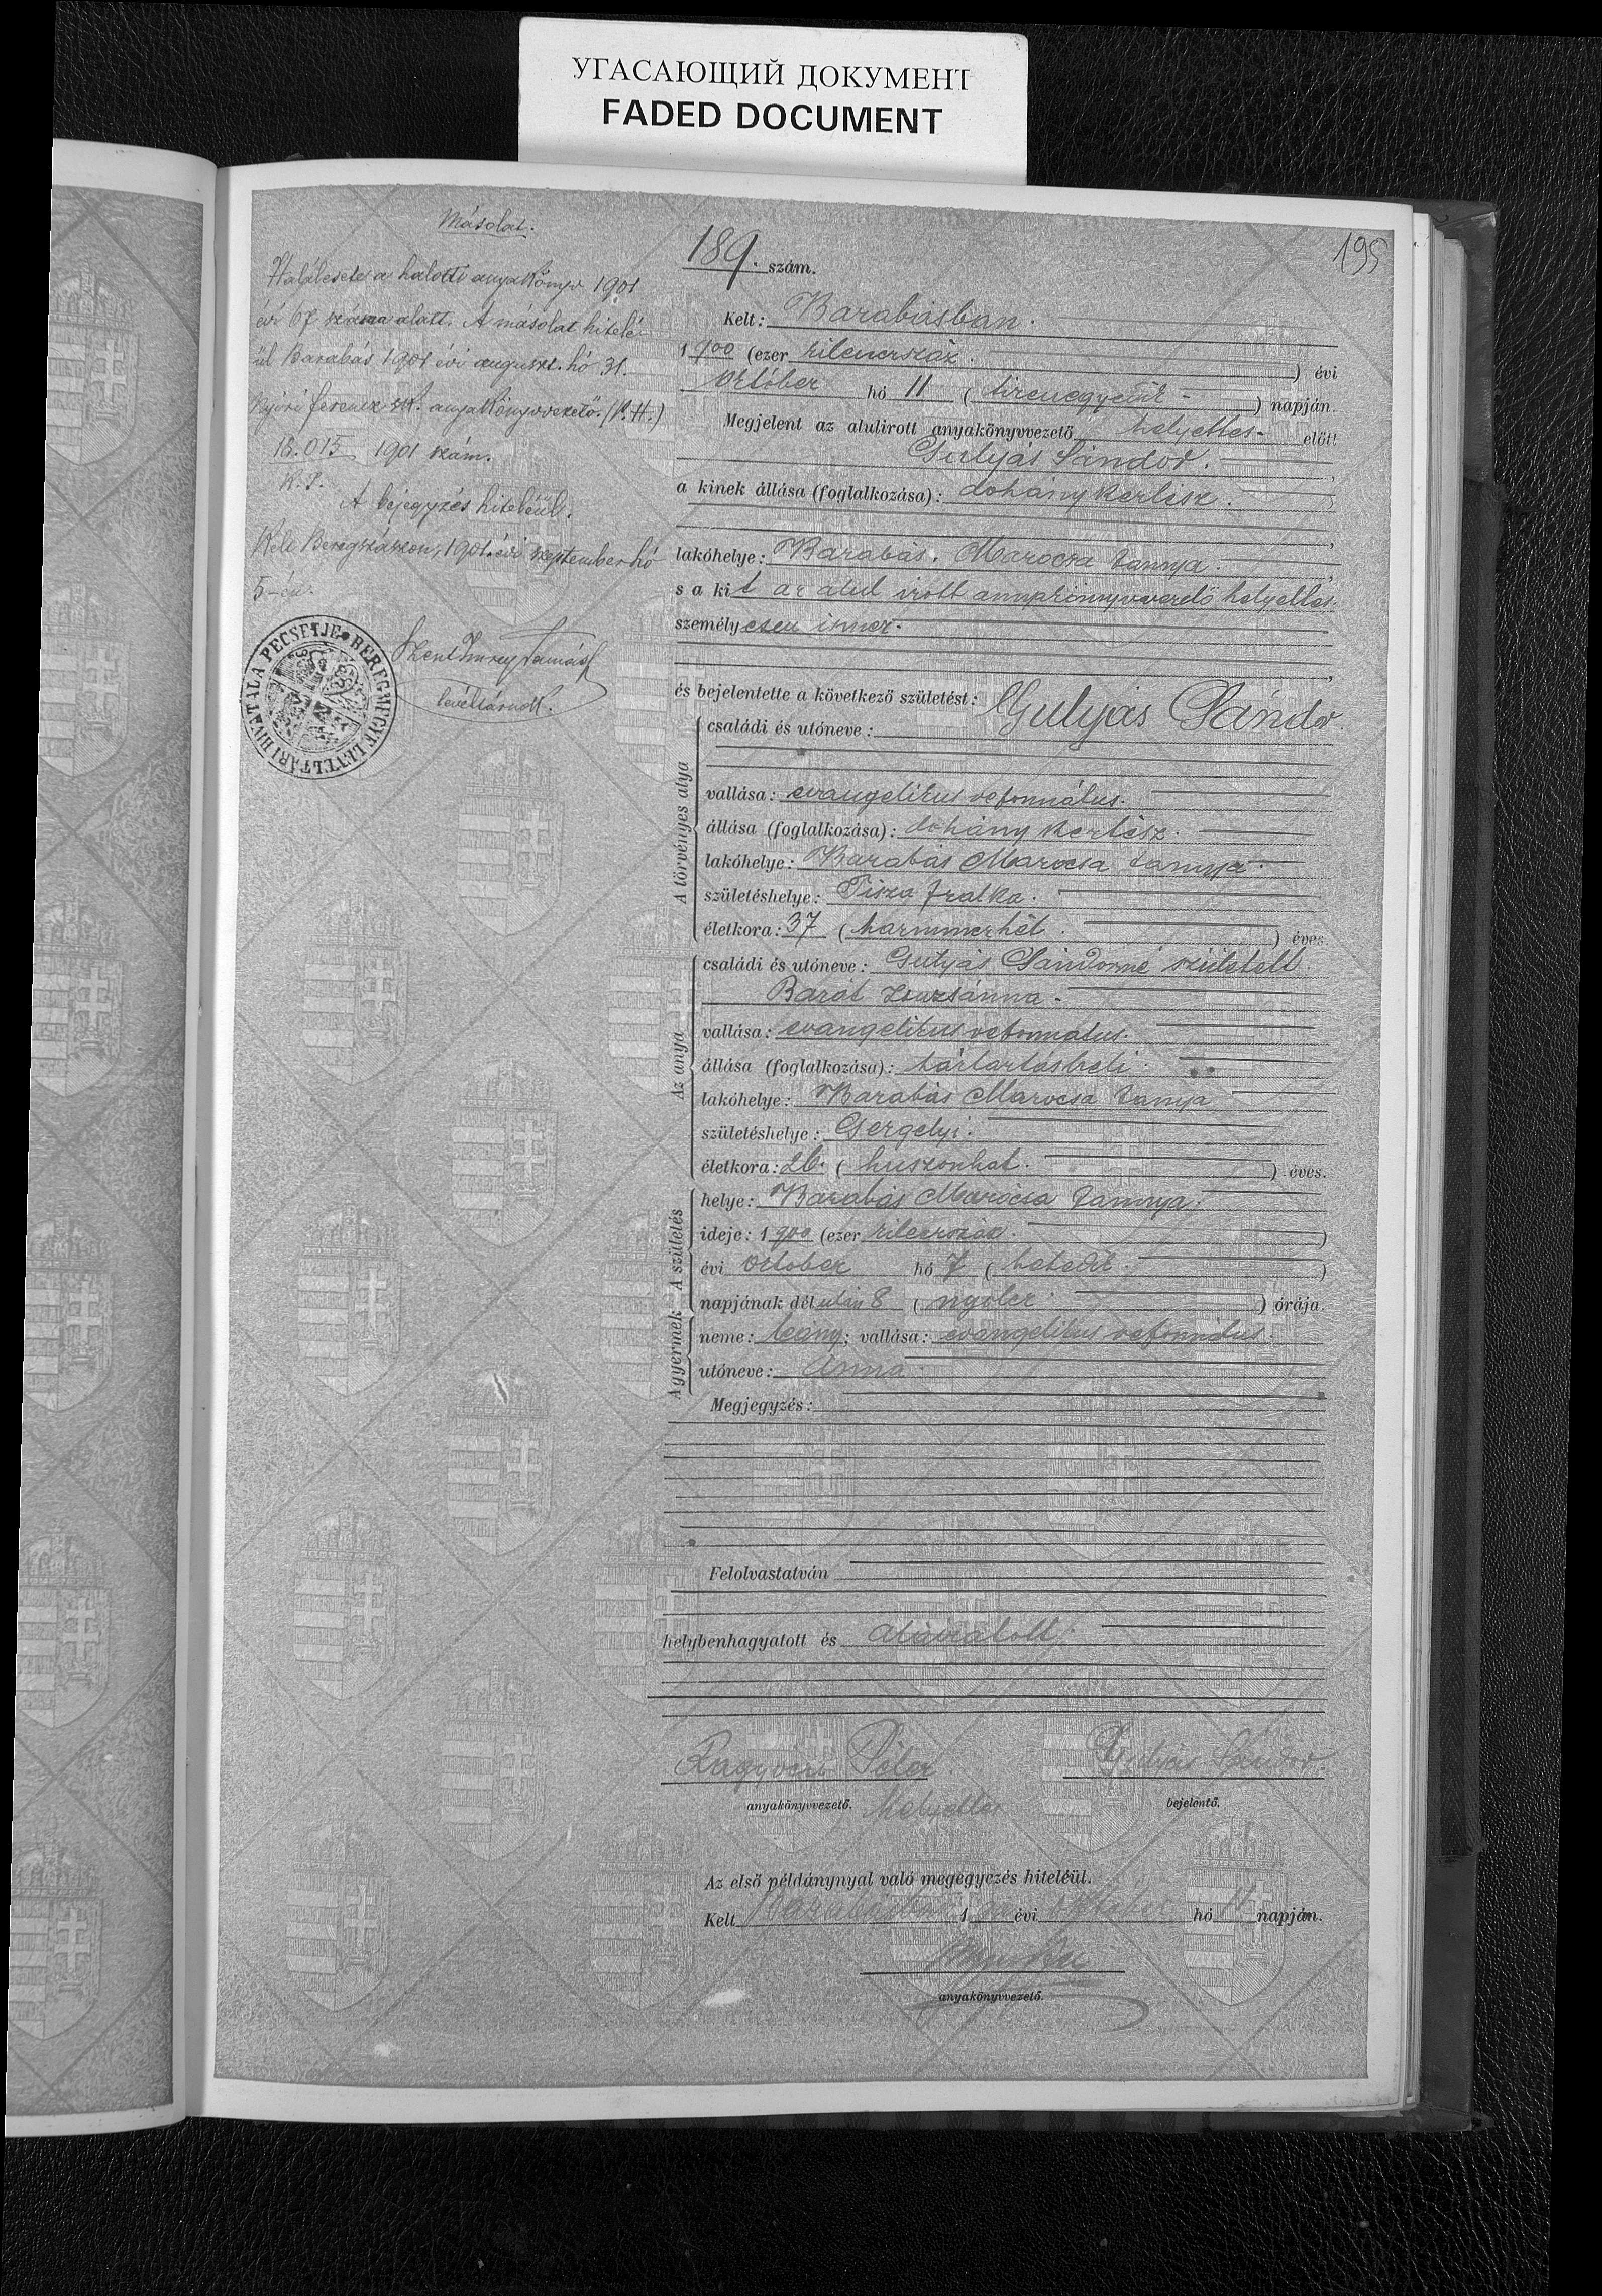 УГАСАЮЩИЙ ДОКУМЕНТ
FADED DOCUMENT
195
Másolat.
Halálesete a halotti anyakönyv 1901
évi 67 száma alatt. A másolat hitelé-
ül Barabás 1901 évi auguszt. hó 31.
Ferencz sk. anyakönyvvezető. (P. H.)
18.015 1901 szám.
K. P.
A bejegyzés hiteléül.
Kelt Beregszászon, 1901. évi szeptember hó
5-én.
Szent Imrey Tamás
levéltárnok.
BEREGMEGYE LEVÉLTÁRI HIVATALA PECSÉTJE
189. szám.
Kelt: Barabásban.
1900 (ezer kilencszáz.) évi
október hó 11 (tizenegyedik -) napján.
Megjelent az alulirott anyakönyvvezető helyettes- előtt
Gulyás Sándor.
a kinek állása (foglalkozása): dohány kertész.
lakóhelye: Barabás. Marocsa tannya.
s a kit az alul irott annyakönnyvvezető helyettes.
személyesen ismer.
és bejelentette a következő születést:
A törvényes atya
családi és utóneve: Gulyás Sándor.
vallása: evangelikus református.
állása (foglalkozása): dohány kertész.
lakóhelye: Barabás Marocsa tannya.
születéshelye: Tisza
életkora: 37 (harminczhét.) éves.
Az anya
családi és utóneve: Gulyás Sándorné született
Barát Zsuzsánna.
vallása: evangelikus reformatus.
állása (foglalkozása): háztartásbeli.
lakóhelye: Barabás Marocsa tannya
születéshelye: Gergelyi.
életkora: 26. (huszonhat.) éves.
A születés
helye: Barabás Marocsa tannya.
ideje: 1900 (ezer kilenczszáz.)
évi október hó 7 (hetedik.)
napjának délután 8 (nyolcz.) órája.
A gyermek
neme: leány; vallása: evangelikus református.
utóneve: Anna.
Megjegyzés:
Felolvastatván
helybenhagyatott és aláiratott.
Péter Gulyás Sándor.
anyakönyvvezető. helyettes bejelentő.
Az első példánynyal való megegyezés hiteléül.
Kelt Barabásban 1900 évi október hó 11 napján.
anyakönyvvezető.